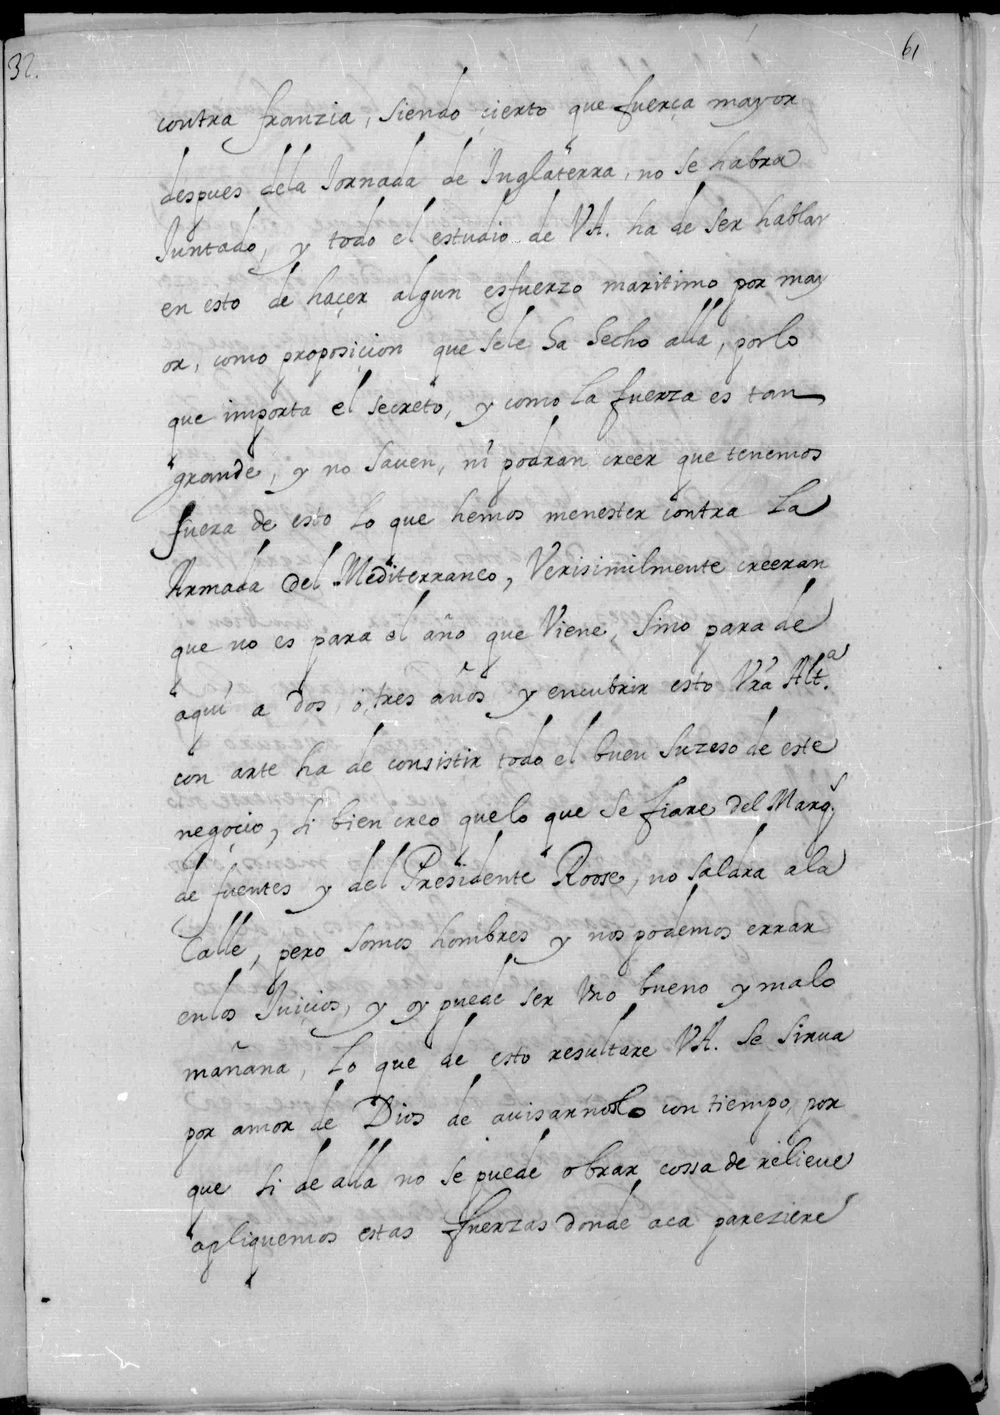 32.
61
contra franzia, siendo çierto que fuerça mayor
despues dela Jornada de Inglaterra, no se habra
Juntado, y todo el estudio de VA. ha de ser hablar
en esto de haçer algun esfuerzo maritimo por may
or, como proposiçion que sele ha hecho allá, porlo
que importa el secreto, y como la fuerza es tan
grande, y no saven, ni podran creer que tenemos
fuera de esto lo que hemos menester contra la
Armada del Mediterraneo, Verisimilmente creeran
que no es para el año que Viene, sino para de
aqui a dos, ó, tres años y encubrir esto Vrã Alt.ª
con arte ha de consistir todo el buen suzeso de este
negoçio, si bien creo quelo que se fiare del Marq.s
de fuentes y del Presidente Roose, no saldra ala
Calle, pero somos hombres y nos podemos errar
enlos Juiçios, y oy puede ser Vno bueno y malo
mañana, lo que de esto resultare VA. se sirua
por amor de Dios de auisarnoslo con tiempo, por
que si de allá no se puede obrar cossa de relieue
apliquemos estas fuerzas donde aca pareziere